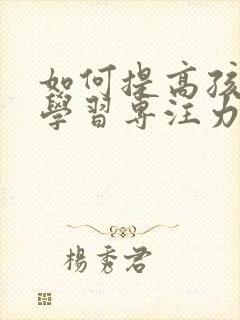 如何提高孩
學習專注力
楊秀君